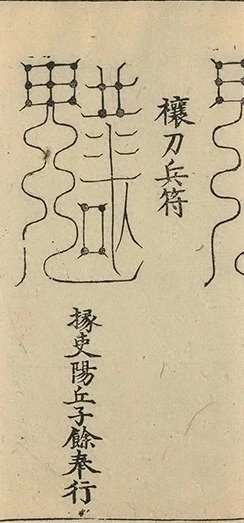 禳刀兵符
掾吏陽丘子餘奉行